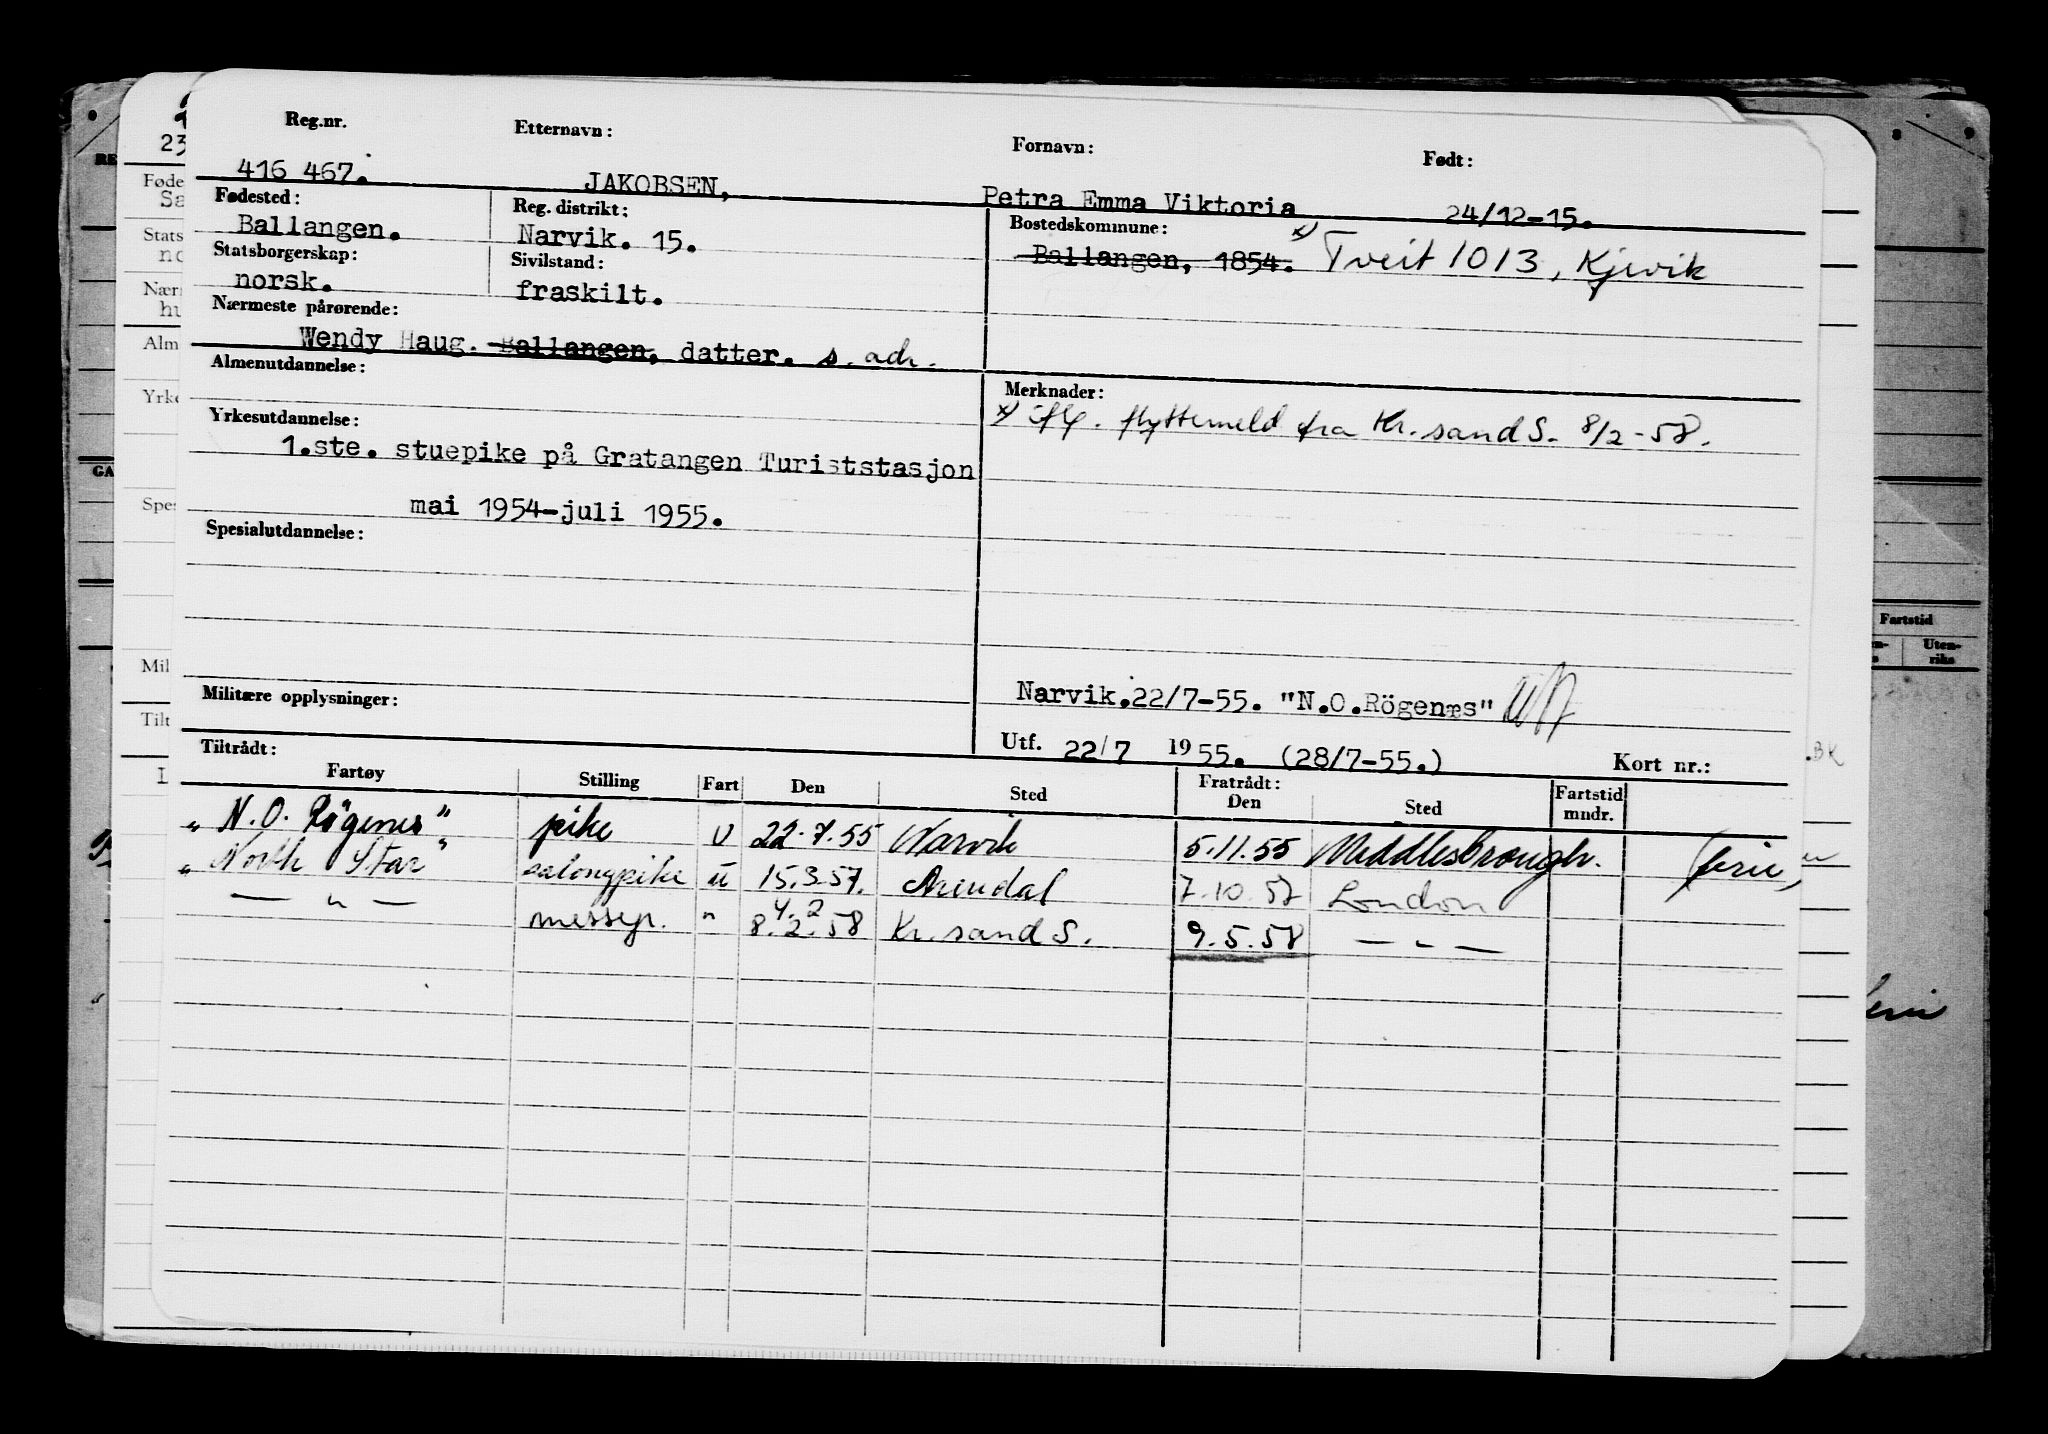 Reg.nr. Etternavn: Fornavn: Født:
416 467. JAKOBSEN, Petra Emma Viktoria 24/12-15.
Fødested: Reg. distrikt: Bostedskommune:
Ballangen. Narvik. 15. x) Ballangen, 1854. Tveit 1013, Kjevik
Statsborgerskap: Sivilstand:
norsk. fraskilt.
Nærmeste pårørende:
Wendy Haug. Ballangen, datter. s. adr.
Almenutdannelse: Merknader:
x) iflg. flyttemeld fra Kr.sand S. 8/2-58.
Yrkesutdannelse:
1.ste. stuepike på Gratangen Turiststasjon
mai 1954-juli 1955.
Spesialutdannelse:
Narvik.22/7-55. "N.O.Rögenæs"
Militære opplysninger:
Utf. 22/7 1955. (28/7-55.) Kort nr.:
Tiltrådt: Fratrådt:
Fartøy Stilling Fart Den Sted Den Sted Fartstid mndr.
"N.O. Rögenes" pike U 22.7.55 Narvik 5.11.55 Middlesbrough. (ferie)
"North Star" salongpike u 15.3.57. Arendal 7.10.57 London
— " — messep. " 4.2 8.2.58 Kr.sand S. 9.5.58 — " —
23
RE
Føde
Sa
Stats
no
Nær
hu
Alm
Yrke
GA
Spes
Mil
Tilt
Fartstid
Uten-
riks